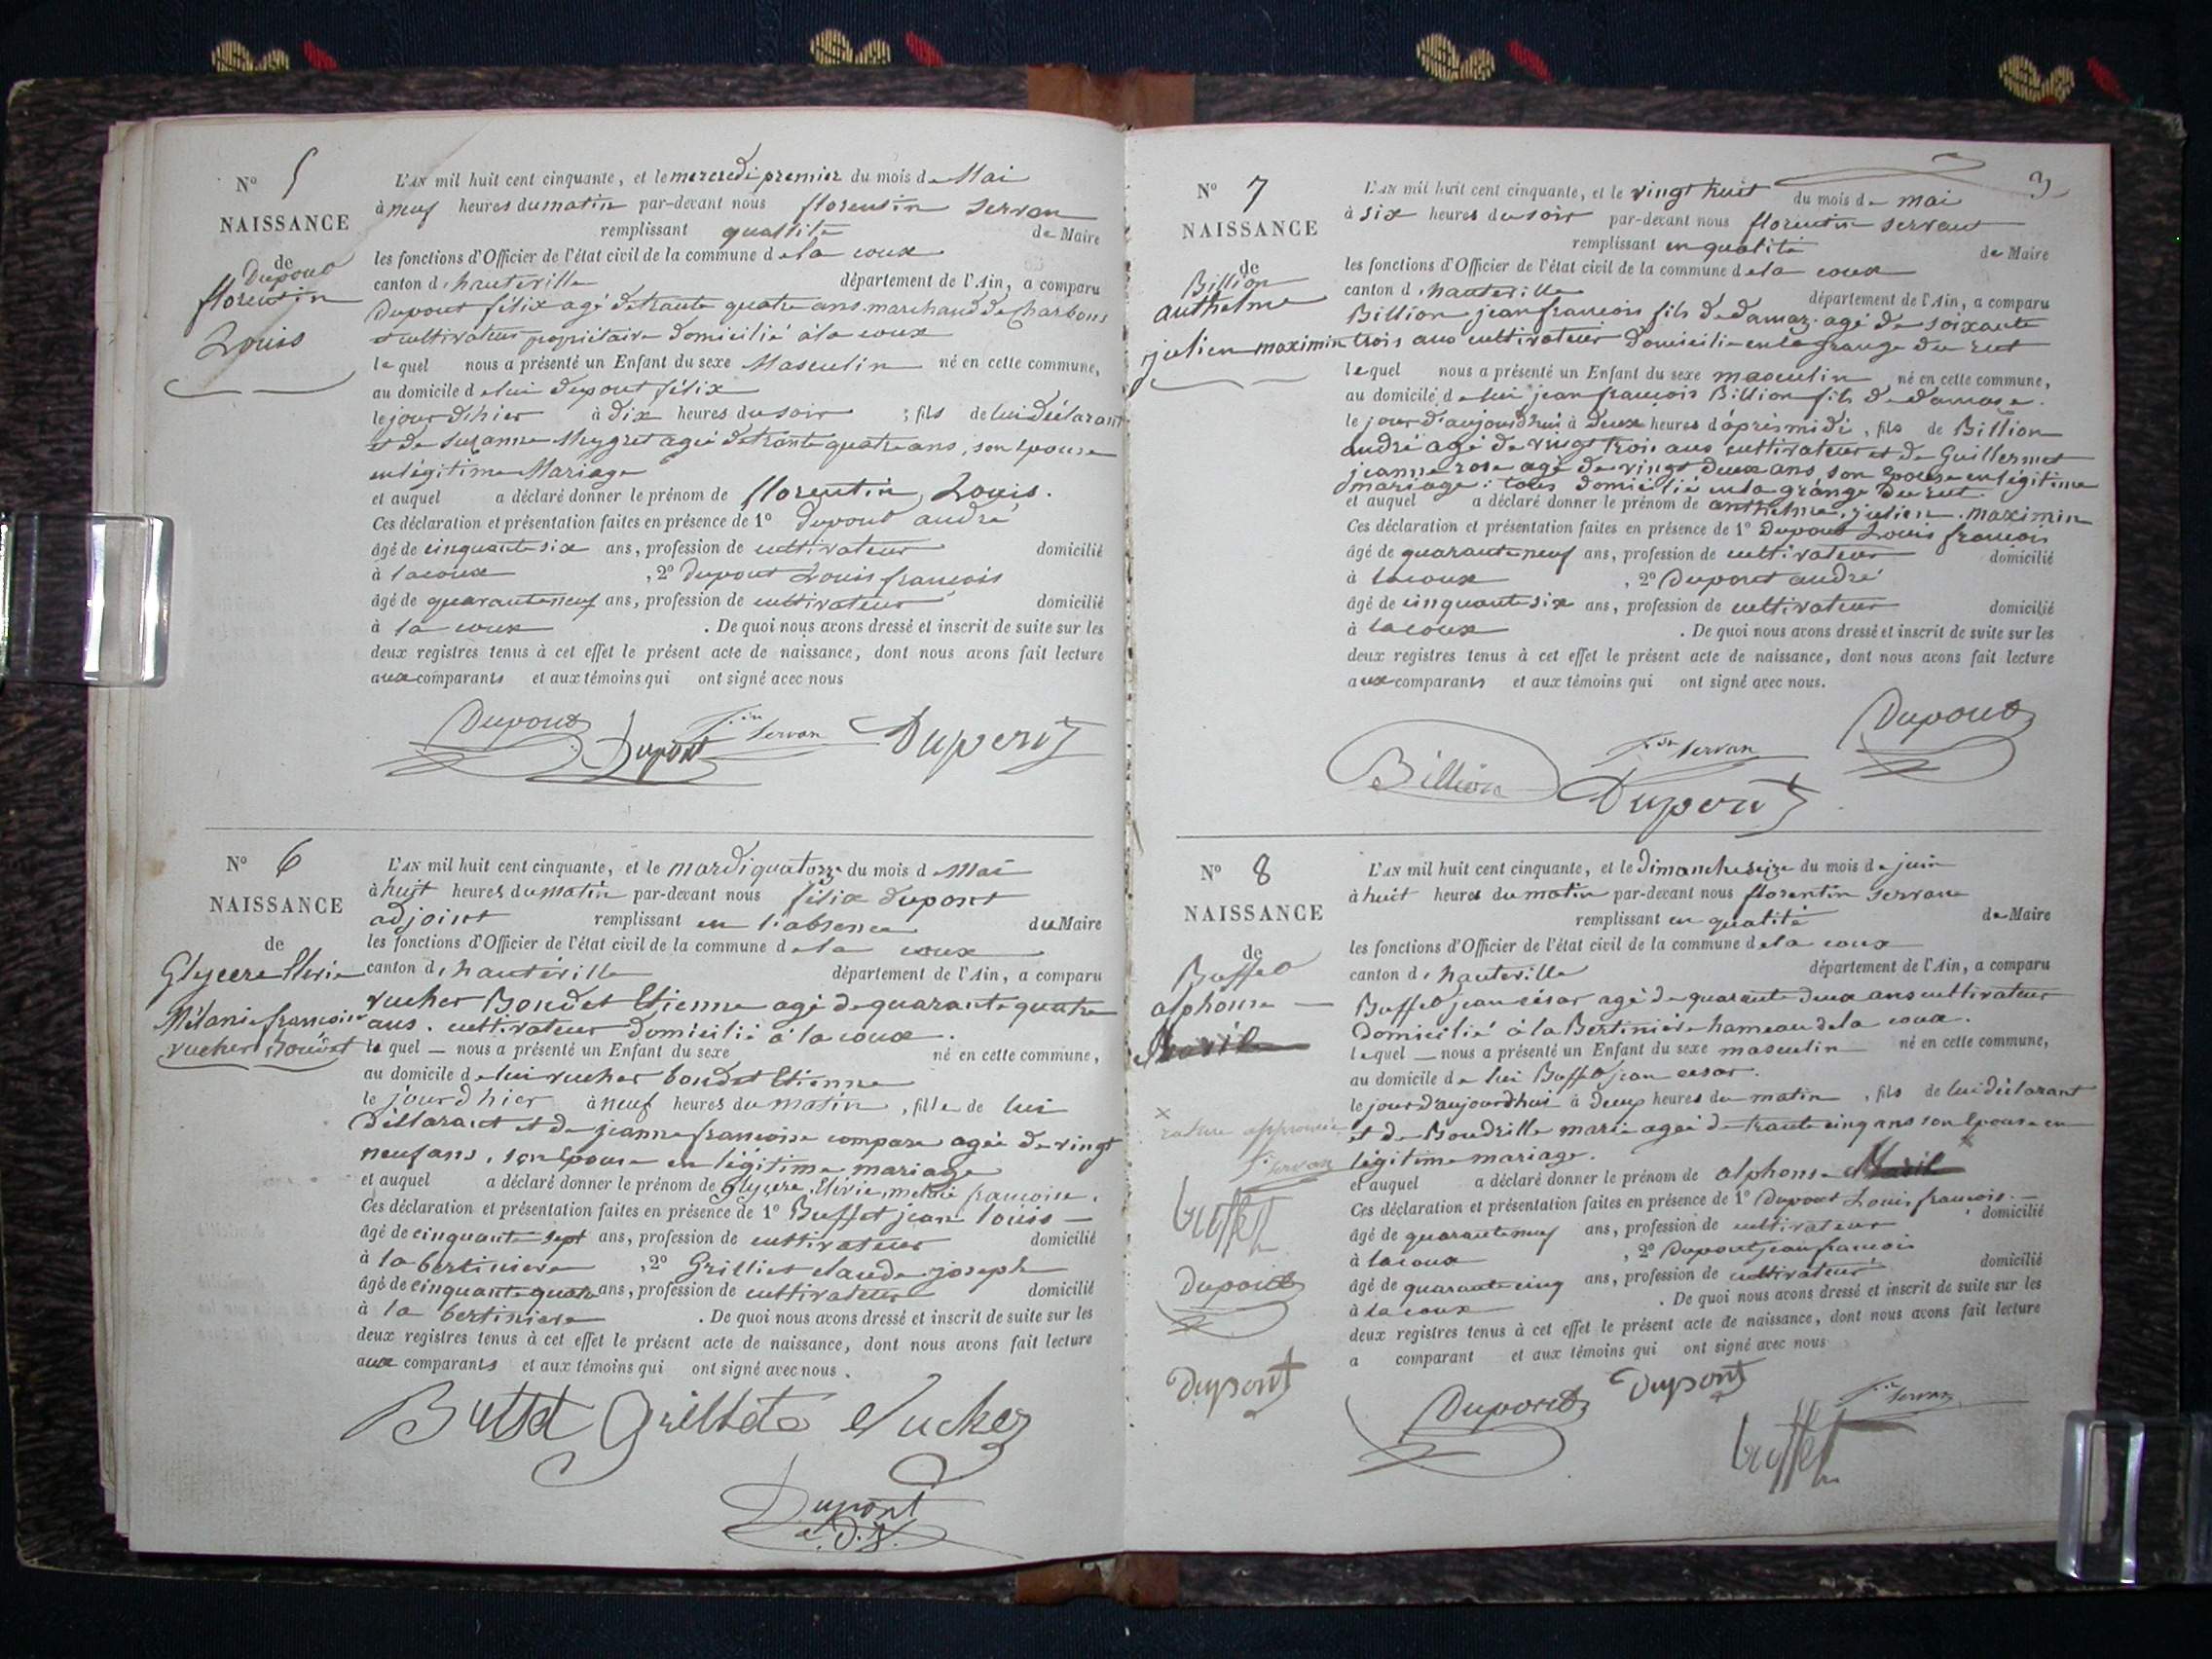 N° 5
NAISSANCE
de
Dupont
florentin
Louis
L'AN mil huit cent cinquante, et le mercredi premier du mois de Mai
à neuf heures du matin par-devant nous florentin servan
remplissant qualité de Maire
les fonctions d'Officier de l'état civil de la commune de la coux
canton d'hauteville département de l'Ain, a comparu
Dupont félix agé detrante quatre ans marchand de Charbons
et cultivateur propriétaire domicilié à la coux
lequel nous a présenté un Enfant du sexe Masculin né en cette commune,
au domicile de lui dupont félix
le jour d'hier à dix heures du soir ; fils de lui déclarant
et de Suzanne Meygret agée detrante quatre ans, son epouse
en légitime Mariage
et auquel a déclaré donner le prénom de florentin, Louis.
Ces déclaration et présentation faites en présence de 1° dupont andré
âgé de cinquante six ans, profession de cultivateur domicilié
à lacoux , 2° dupont Louis françois
âgé de quarante neuf ans, profession de cultivateur domicilié
à la coux . De quoi nous avons dressé et inscrit de suite sur les
deux registres tenus à cet effet le présent acte de naissance, dont nous avons fait lecture
aux comparants et aux témoins qui ont signé avec nous
Dupont Dupont Servan Dupont
N° 6
NAISSANCE
de
Glycere Elivie
Mélanie françoise
vucher Boudet
L'AN mil huit cent cinquante, et le mardi quatorze du mois de Mai
à huit heures du matin par-devant nous félix dupont
adjoint remplissant en l'absence du Maire
les fonctions d'Officier de l'état civil de la commune de la coux
canton d'hauteville département de l'Ain, a comparu
vucher Boudet Etienne agé de quarante quatre
ans. cultivateur domicilié à la coux.
lequel — nous a présenté un Enfant du sexe né en cette commune,
au domicile de lui vucher boudet Etienne
le jour d'hier à neuf heures du matin, fille de lui
déllarant et de jeanne françoise compare agée de vingt
neuf ans, son Epouse en légitime mariage
et auquel a déclaré donner le prénom de Glycere, Elivie, melanie françoise.
Ces déclaration et présentation faites en présence de 1° Buffet jean louis —
âgé de cinquante sept ans, profession de cultivateur domicilié
à la bertiniere , 2° Grilliet claude joseph
âgé de cinquante quatre ans, profession de cultivateur domicilié
à la bertiniere . De quoi nous avons dressé et inscrit de suite sur les
deux registres tenus à cet effet le présent acte de naissance, dont nous avons fait lecture
aux comparants et aux témoins qui ont signé avec nous.
Buffet Vucher
Dupont
3
N° 7
NAISSANCE
de
Billion
anthelme
julien maximin
L'AN mil huit cent cinquante, et le vingt huit du mois de mai
à six heures du soir par-devant nous florentin servant
remplissant en qualité de Maire
les fonctions d'Officier de l'état civil de la commune de la coux
canton d'hauteville département de l'Ain, a comparu
Billion jean francois fils de damaz agé de soixante
trois ans cultivateur domicilié en la grange du rut
lequel nous a présenté un Enfant du sexe masculin né en cette commune,
au domicile de lui jean françois Billion fils de damase.
le jour d'aujourdhui à deux heures d'aprésmidi, fils de Billion
andré agé de vingt trois ans cultivateur et de Guillermet
jeanne rose agé de vingt deux ans son Epouse en légitime
mariage: tous domicilié en la grange du rut.
et auquel a déclaré donner le prénom de anthelme, julien, maximin
Ces déclaration et présentation faites en présence de 1° Dupont Louis françois
âgé de quarante neuf ans, profession de cultivateur domicilié
à lacoux , 2° Dupont andré
âgé de cinquante six ans, profession de cultivateur domicilié
à lacoux . De quoi nous avons dressé et inscrit de suite sur les
deux registres tenus à cet effet le présent acte de naissance, dont nous avons fait lecture
aux comparants et aux témoins qui ont signé avec nous.
Billion Servan Dupont
Dupont
N° 8
NAISSANCE
de
Buffet
alphonse —
L'AN mil huit cent cinquante, et le Dimanche seize du mois de juin
à huit heures du matin par-devant nous florentin servan
remplissant en qualité de Maire
les fonctions d'Officier de l'état civil de la commune de la coux
canton d'hauteville département de l'Ain, a comparu
Buffet jean césar agé de quarante deux ans cultivateur
Domicilié à la Bertinière hameau de la coux.
lequel — nous a présenté un Enfant du sexe masculin né en cette commune,
au domicile de lui Buffet jean cesar.
le jour d'aujourdhui à deux heures du matin, fils de lui déclarant
et de Boudrille marie agée de trante cinq ans son Epouse en
légitime mariage.
et auquel a déclaré donner le prénom de alphonse
Ces déclaration et présentation faites en présence de 1° Dupont Louis françois. —
âgé de quarante neuf ans, profession de cultivateur domicilié
à lacoux , 2° Dupont jean francois
âgé de quarante cinq ans, profession de cultivateur domicilié
à la coux . De quoi nous avons dressé et inscrit de suite sur les
deux registres tenus à cet effet le présent acte de naissance, dont nous avons fait lecture
a comparant et aux témoins qui ont signé avec nous
rature approuvée
Servan
buffet
Dupont
Dupont
Dupont Dupont Servan
buffet